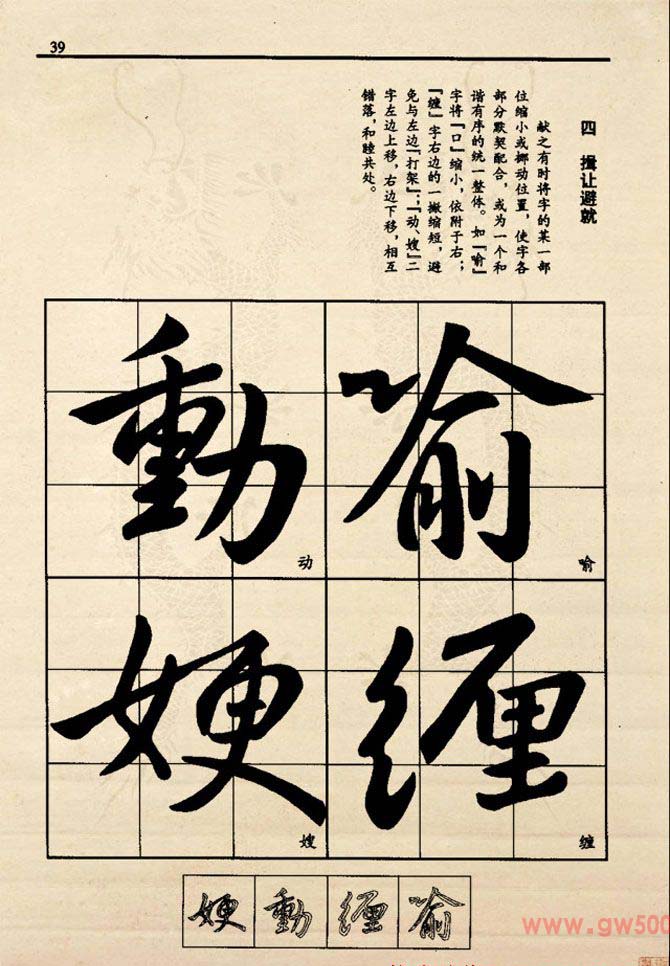 39
四 揖让避就
献之有时将字的某一部
位缩小或挪动位置，使字各
部分默契配合，或为一个和
谐有序的统一整体。如『喻』
字将『口』缩小，依附于右；
『缠』字右边的一撇缩短，避
免与左边『打架』；『动、嫂』二
字左边上移，右边下移，相互
错落，和睦共处。
喻
動
喻
动
缠
㛐
缠
嫂
㛐 動 缠 喻
www.gw500